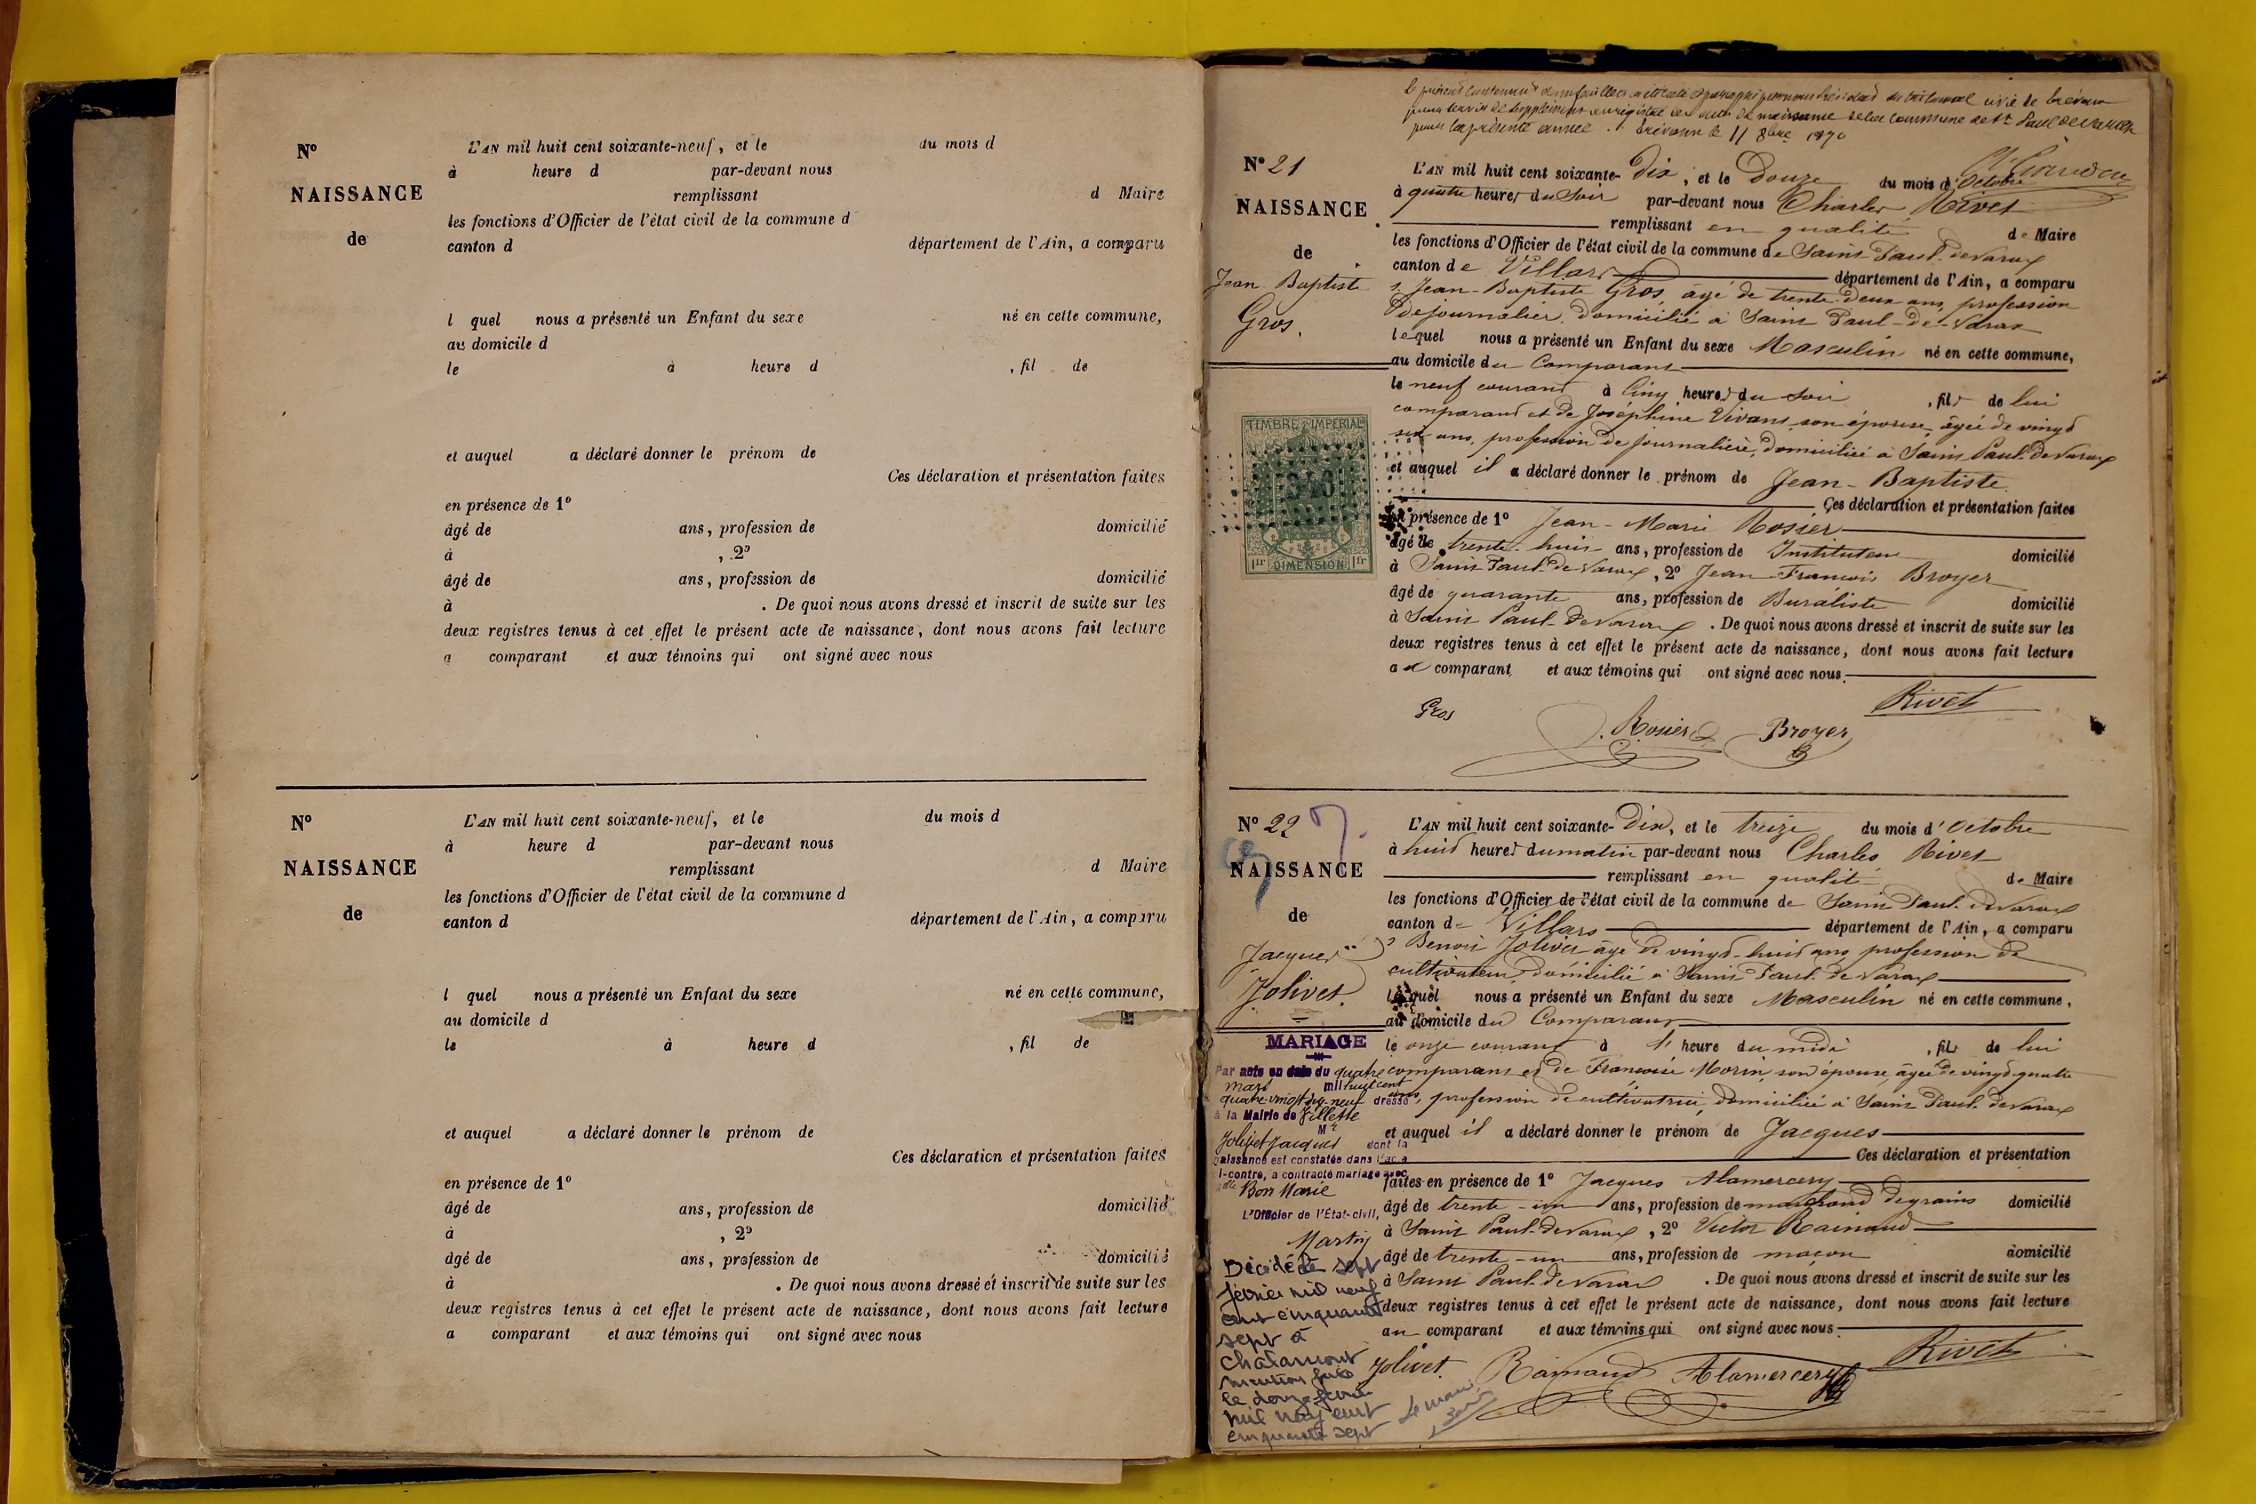 N°
NAISSANCE
de
L'AN mil huit cent soixante-neuf, et le du mois d
à heure d par-devant nous
remplissant d Maire
les fonctions d'Officier de l'état civil de la commune d
canton d département de l'Ain, a comparu
l quel nous a présenté un Enfant du sexe né en cette commune,
au domicile d
le à heure d , fil de
et auquel a déclaré donner le prénom de
Ces déclaration et présentation faites
en présence de 1°
âgé de ans, profession de domicilié
à , 2°
âgé de ans, profession de domicilié
à . De quoi nous avons dressé et inscrit de suite sur les
deux registres tenus à cet effet le présent acte de naissance, dont nous avons fait lecture
a comparant et aux témoins qui ont signé avec nous
N°
NAISSANCE
de
L'AN mil huit cent soixante-neuf, et le du mois d
à heure d par-devant nous
remplissant d Maire
les fonctions d'Officier de l'état civil de la commune d
canton d département de l'Ain, a comparu
l quel nous a présenté un Enfant du sexe né en cette commune,
au domicile d
le à heure d , fil de
et auquel a déclaré donner le prénom de
Ces déclaration et présentation faites
en présence de 1°
âgé de ans, profession de domicilié
à , 2°
âgé de ans, profession de domicilié
à . De quoi nous avons dressé et inscrit de suite sur les
deux registres tenus à cet effet le présent acte de naissance, dont nous avons fait lecture
a comparant et aux témoins qui ont signé avec nous
le présent contenant feuillets a été coté et paraphé par nous Président du tribunal civil de Trévoux
pour servir de supplément au registre des actes de naissance de la commune de St Paul de Varax
pour la présente année. Trévoux le 11 8bre 1870
N° 21
NAISSANCE
de
Jean Baptiste
Gros.
L'AN mil huit cent soixante-Dix, et le Douze du mois d'Octobre
à quatre heures du Soir par-devant nous Charles Rivet
remplissant en qualité de Maire
les fonctions d'Officier de l'état civil de la commune de Saint Paul-de Varax
canton de Villars département de l'Ain, a comparu
s. Jean-Baptiste Gros, âgé de trente-deux ans, profession
de journalier, domicilié à Saint Paul-de-Varax
lequel nous a présenté un Enfant du sexe Masculin né en cette commune,
au domicile du Comparant
le neuf courant à Cinq heures du soir , fils de lui
comparant et de Joséphine Vivant son épouse, âgée de vingt
six ans, profession de journalière, domiciliée à Saint Paul-de Varax
et auquel il a déclaré donner le prénom de Jean-Baptiste
Ces déclaration et présentation faites
en présence de 1° Jean-Marie Rosier
âgé de trente-huit ans, profession de Instituteur domicilié
à Saint Paul-de Varax, 2° Jean-François Broyer
âgé de quarante ans, profession de Buraliste domicilié
à Saint Paul-de Varax. De quoi nous avons dressé et inscrit de suite sur les
deux registres tenus à cet effet le présent acte de naissance, dont nous avons fait lecture
au comparant et aux témoins qui ont signé avec nous.
Gros
J. Rosier
Broyer
Rivet
TIMBRE IMPERIAL
1fr DIMENSION 1fr
N° 22
NAISSANCE
de
Jacques
Jolivet.
L'AN mil huit cent soixante-Dix, et le treize du mois d'Octobre
à huit heures du matin par-devant nous Charles Rivet
remplissant en qualité de Maire
les fonctions d'Officier de l'état civil de la commune de Saint Paul-de Varax
canton de Villars département de l'Ain, a comparu
s. Benoit Jolivet âgé de vingt-huit ans profession de
cultivateur, domicilié à Saint Paul-de Varax
lequel nous a présenté un Enfant du sexe Masculin né en cette commune,
au domicile du Comparant
le onze courant à 1 heure du midi , fils de lui
comparant et de Françoise Morin, son épouse, âgée de vingt-quatre
ans, profession de cultivatrice, domiciliée à Saint Paul-de Varax
et auquel il a déclaré donner le prénom de Jacques
Ces déclaration et présentation
faites en présence de 1° Jacques Alamercery
âgé de trente-un ans, profession de marchand de grains domicilié
à Saint Paul-de Varax, 2° Victor Rainaud
âgé de trente-un ans, profession de maçon domicilié
à Saint Paul-de Varax. De quoi nous avons dressé et inscrit de suite sur les
deux registres tenus à cet effet le présent acte de naissance, dont nous avons fait lecture
au comparant et aux témoins qui ont signé avec nous.
Jolivet.
Rainaud
Alamercery
Rivet
MARIAGE
Par acte en date du quatre
mars mil huit cent
quatre-vingt-dix-neuf dressé
à la Mairie de Villette
Mr
Jolivet Jacques dont la
naissance est constatée dans l'acte
ci-contre, a contracté mariage avec
Mlle Bon Marie
L'Officier de l'État-civil,
Martin
Décédé le sept
février mil neuf
cent cinquante
sept à
Chalamont
mention faite
le douze février
mil neuf cent
cinquante sept
Le maire